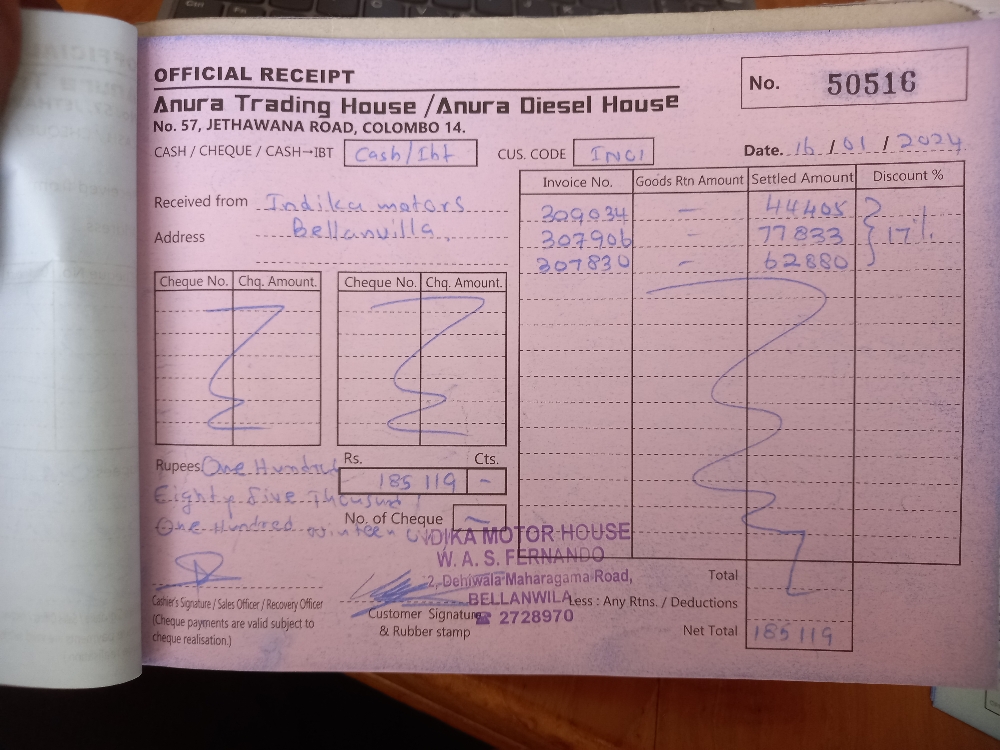 OFFICIAL RECEIPT
No. 50516
Anura Trading House / Anura Diesel House
No. 57, JETHAWANA ROAD, COLOMBO 14.
CASH / CHEQUE / CASH→IBT Cash/Ibt CUS. CODE INCI Date. 16 / 01 / 2024
Received from Indika motors
Address Bellanvilla,
Invoice No. Goods Rtn Amount Settled Amount Discount %
309034 — 44405
307906 — 77833 17%
307830 — 62880
Cheque No. Chq. Amount. Cheque No. Chq. Amount.
Rs. Cts.
185 119 -
Rupees One Hundred
Eighty Five Thousand
One Hundred
No. of Cheque —
INDIKA MOTOR HOUSE
W. A. S. FERNANDO
2, Dehiwala Maharagama Road,
BELLANWILA
☎ 2728970
Cashier's Signature / Sales Officer / Recovery Officer
(Cheque payments are valid subject to
cheque realisation.)
Customer Signature
& Rubber stamp
Total
Less : Any Rtns. / Deductions
Net Total 185119